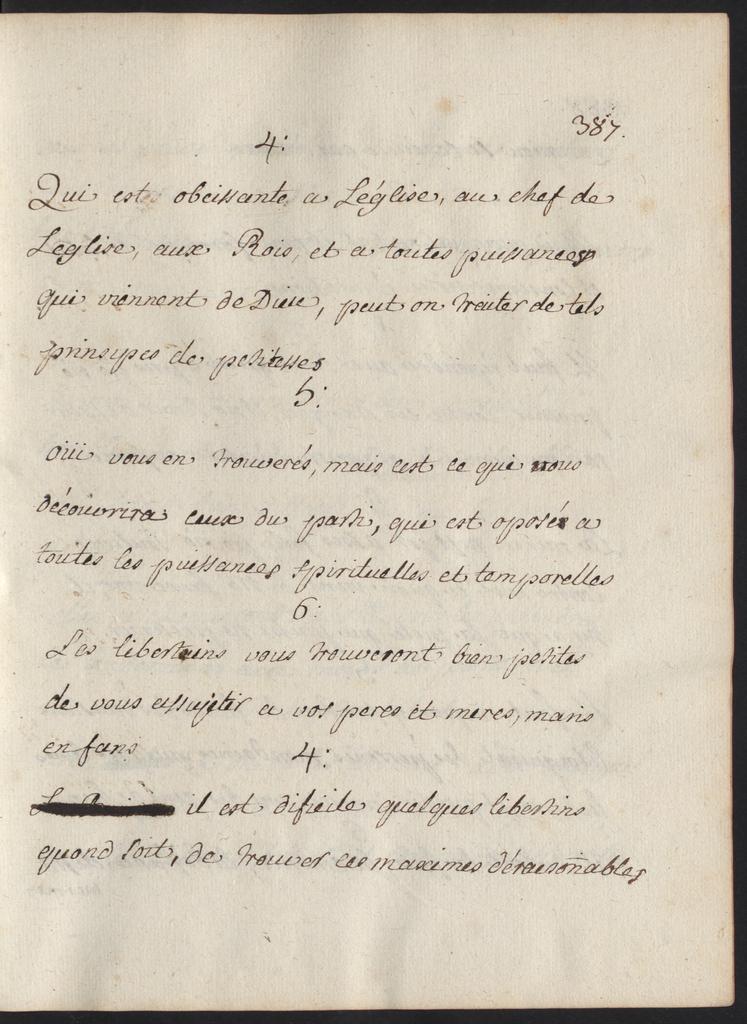 387.
4:
Qui est obeissante a Léglise, au chef de
Leglise, aux Rois, et a toutes puissances
qui viennent de Dieu, peut on traiter de tels
prinsipes de petitesses
5:
oüi vous en trouverés, mais cest ce qui vous
découvrira ceux du parti, qui est oposé a
toutes les puissances spirituelles et temporelles
6:
Les libertins vous trouveront bien petites
de vous assujetir a vos peres et meres, maris
enfans
4:
il est dificile quelques libertins
quond soit, de trouver ces maximes déraisoñables